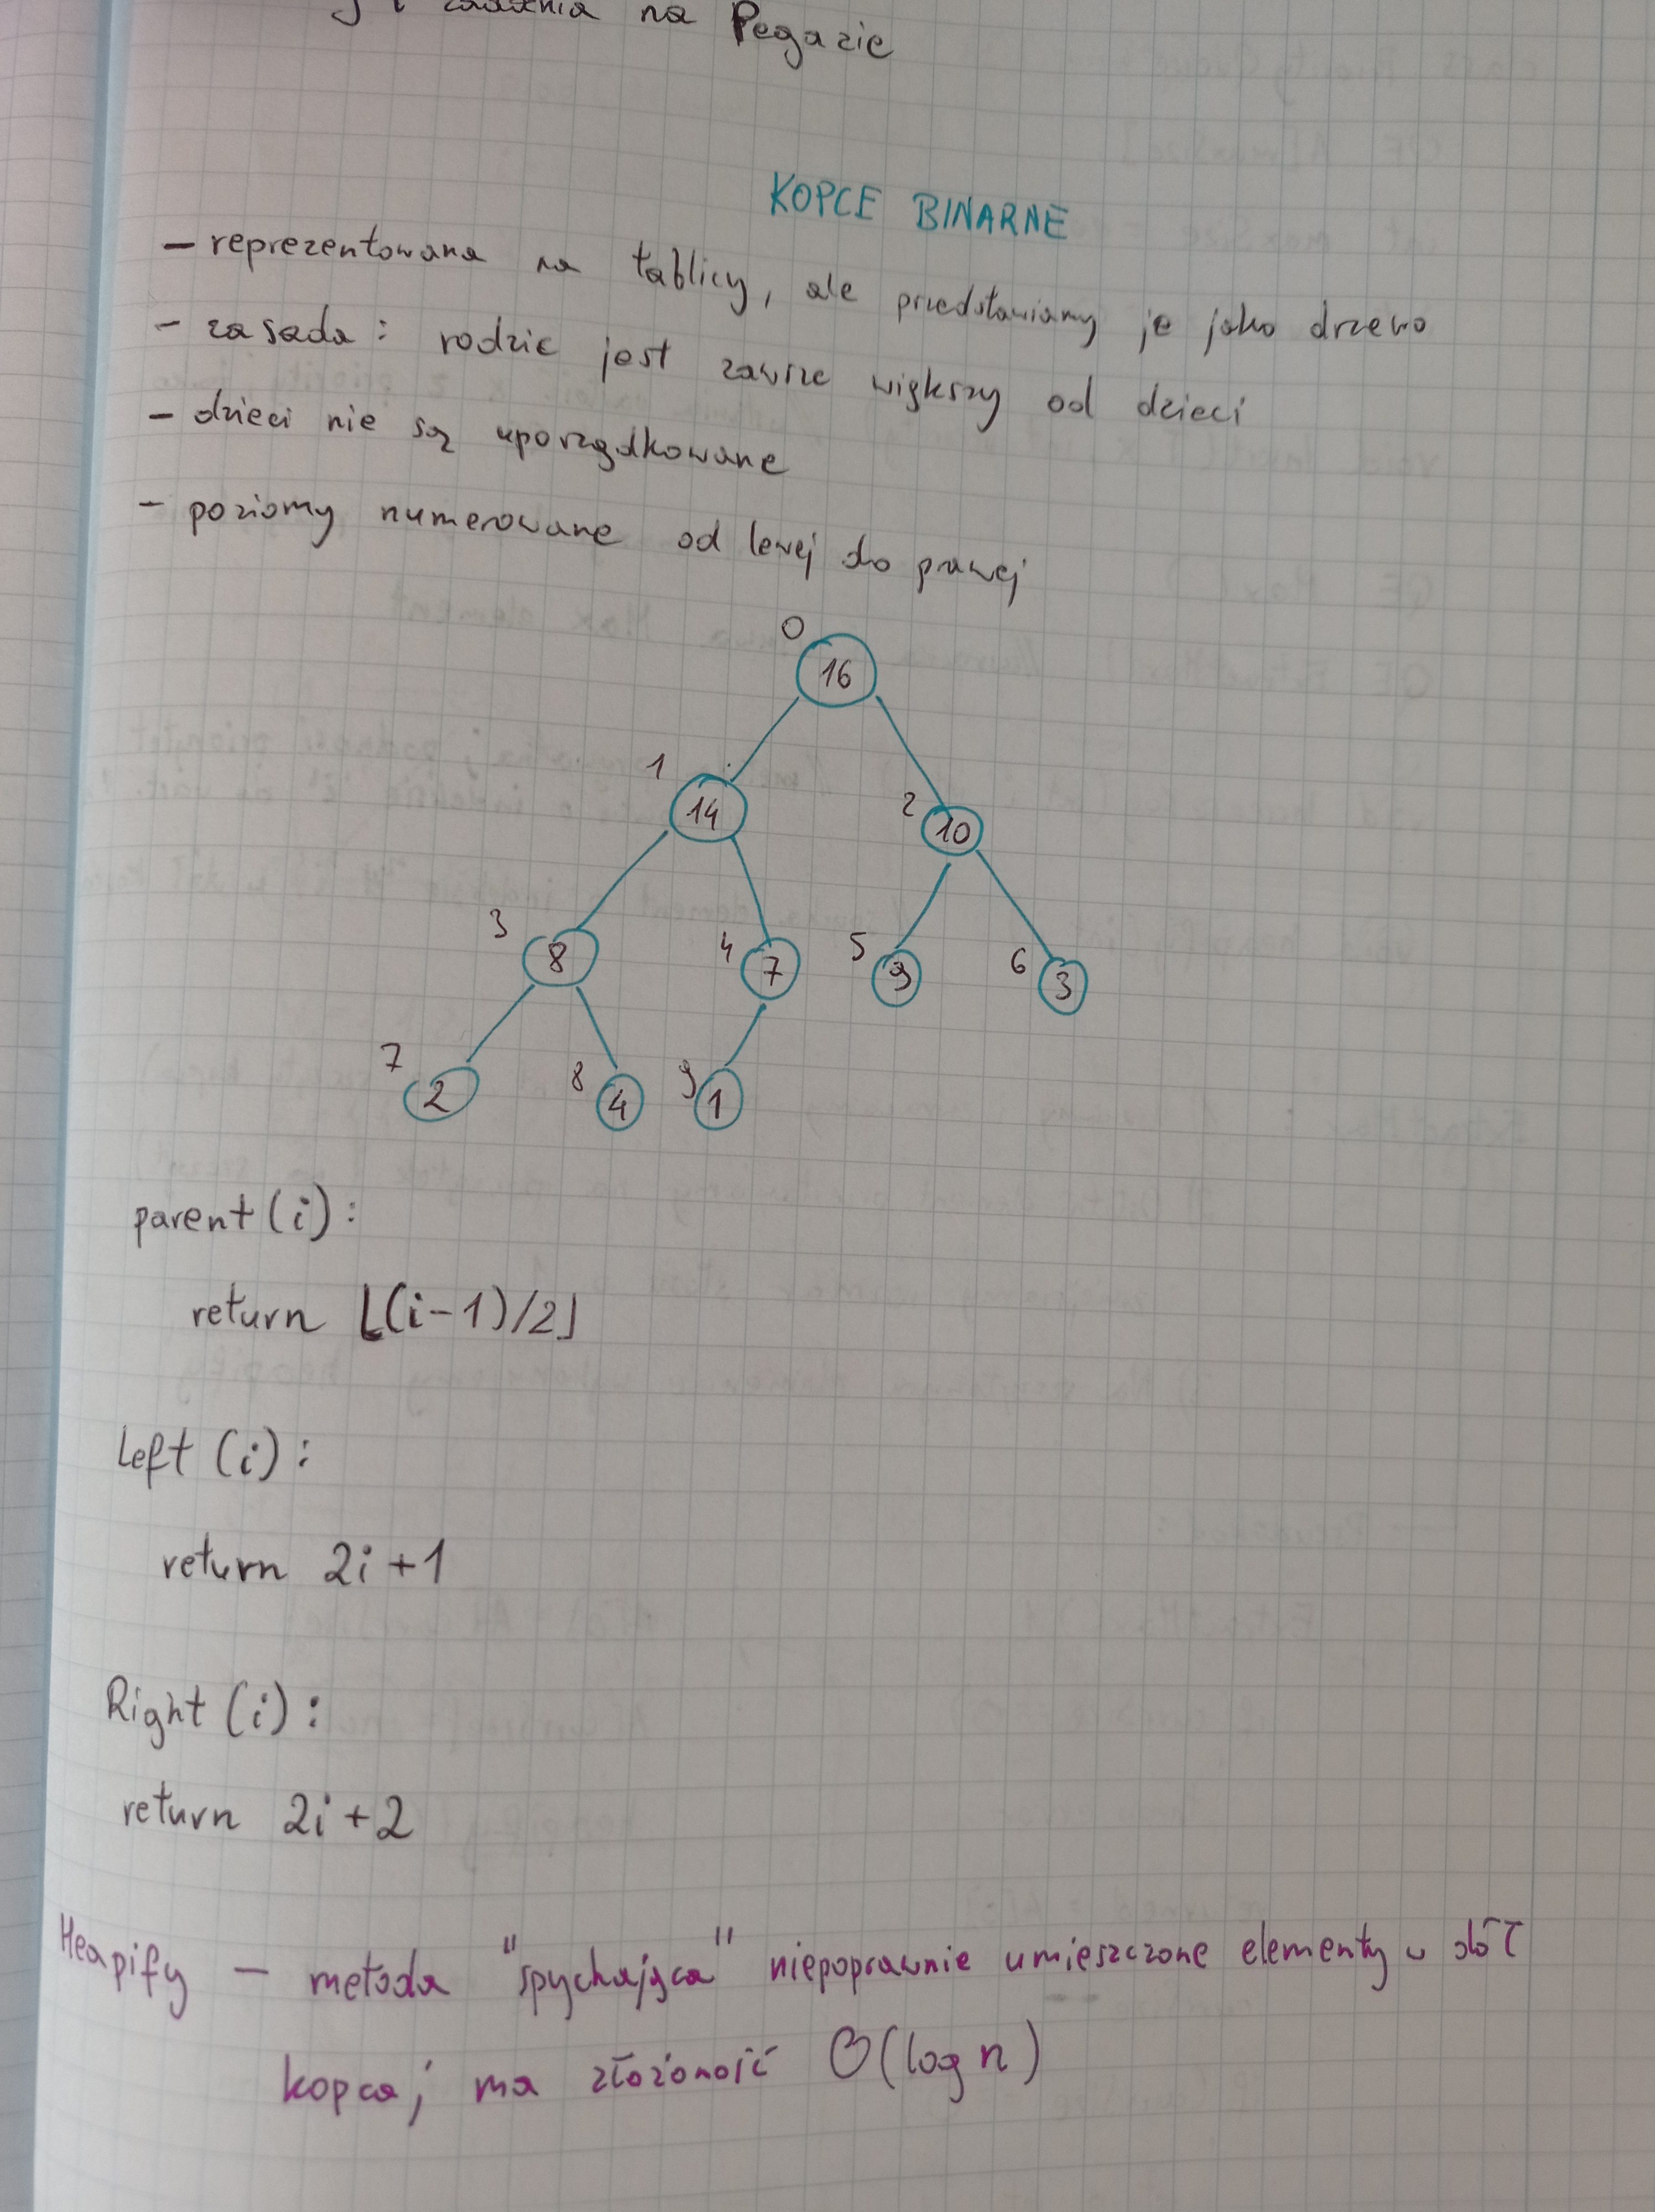 zadania na Pegazie
KOPCE BINARNE
- reprezentowane na tablicy, ale przedstawiamy je jako drzewo
- zasada: rodzic jest zawsze większy od dzieci
- dzieci nie są uporządkowane
- poziomy numerowane od lewej do prawej
0
16
1
14
2
10
3
8
4
7
5
9
6
3
7
2
8
4
9
1
parent(i):
return ⌊(i-1)/2⌋
Left (i):
return 2i+1
Right (i):
return 2i+2
Heapify - metoda "spychająca" niepoprawnie umieszczone elementy w dół
kopca; ma złożoność O(log n)